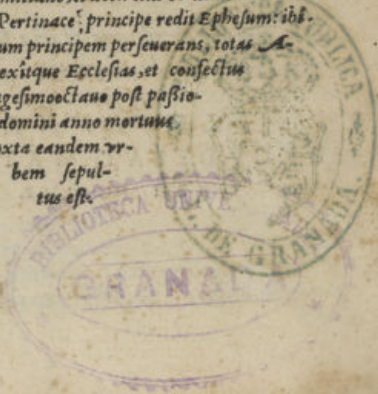 Pertinace principe redit Ephesum: ibi-
um principem perseuerans, totas A-
exîtque Ecclesias, et confectus
gesimooctauo post paßio-
domini anno mortuus
xta eandem vr-
bem sepul-
tus est.
BIBLIOTECA UNIVE
GRANADA
PUBLICA
DE GRANADA.